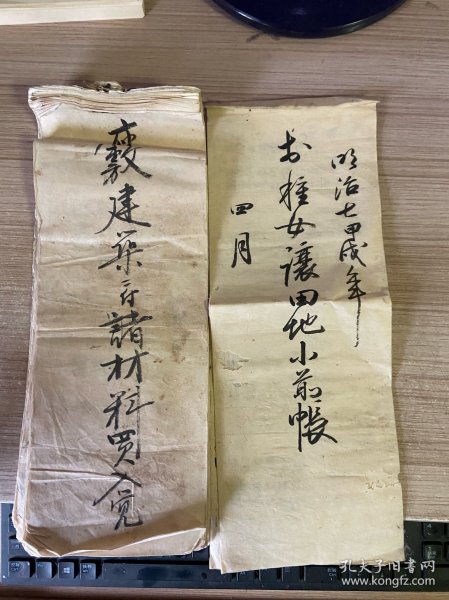 明治七甲戌年
お種女讓田地小前帳
四月
建築ニ付諸材料買入覚
孔夫子旧书网
www.kongfz.com